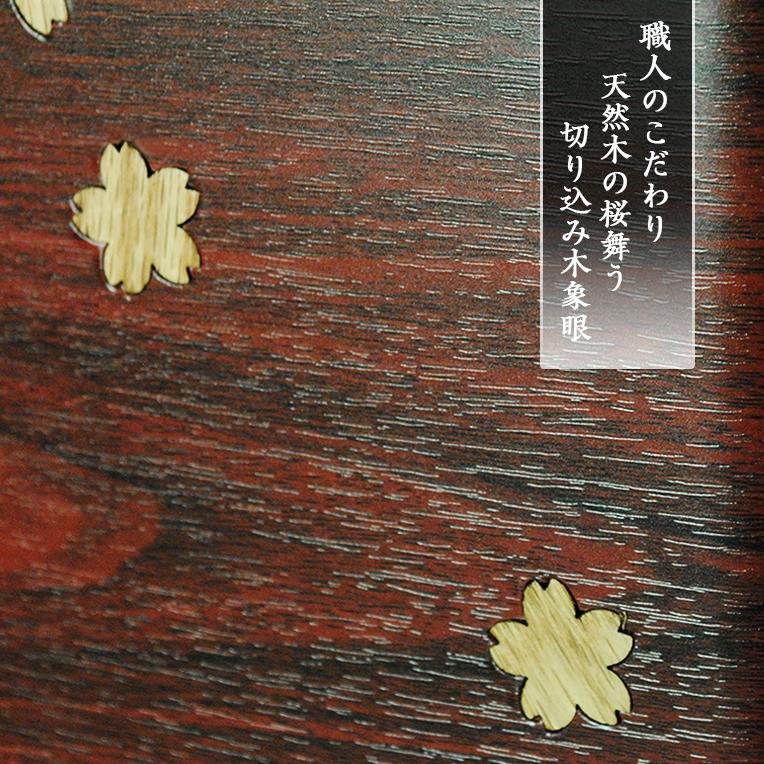 職人のこだわり
天然木の桜舞う
切り込み木象眼